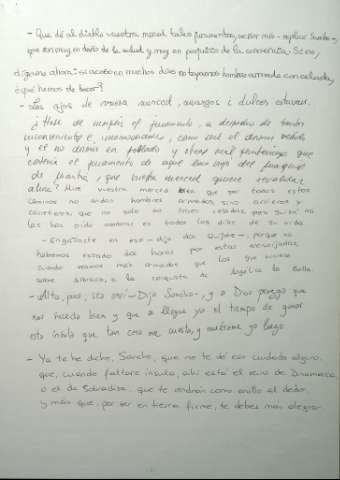 - Que dé al diablo vuestra merced tales juramentos, señor mío - replicó Sancho -
que son muy en daño de la salud y muy en perjuicio de la conciencia. Si no,
dígame ahora: si acaso en muchos días no topamos hombre armado con celada,
¿qué hemos de hacer?
¿Hase de cumplir el juramento, a despecho de tantos
inconvenientes e incomodidades, como será el dormir vestido
y el no dormir en poblado y otras mil penitencias que
contenía el juramento de aquel loco viejo del marqués
de Mantua, que vuestra merced quiere revalidar
ahora? Mire vuestra merced bien que por todos estos
caminos no andan hombres armados, sino arrieros y
carreteros, que no sólo no traen celadas, pero quizá no
las han oído nombrar en todos los días de su vida
- Engáñaste en eso - dijo don Quijote -, porque no
habremos estado dos horas por estas encrucijadas
cuando veamos más armados que los que vinieron
sobre Albraca, a la conquista de Angélica la Bella.
- Alto, pues; sea así - Dijo Sancho -, y a Dios prazga que
nos suceda bien y que se llegue ya el tiempo de ganar
esta ínsula que tan cara me cuesta, y muérame yo luego
- Ya te he dicho, Sancho, que no te dé eso cuidado alguno,
que, cuando faltare ínsula, ahí está el reino de Dinamarca
o el de Sobradisa, que te vendrán como anillo al dedo,
y más que, por ser en tierra firme, te debes más alegrar